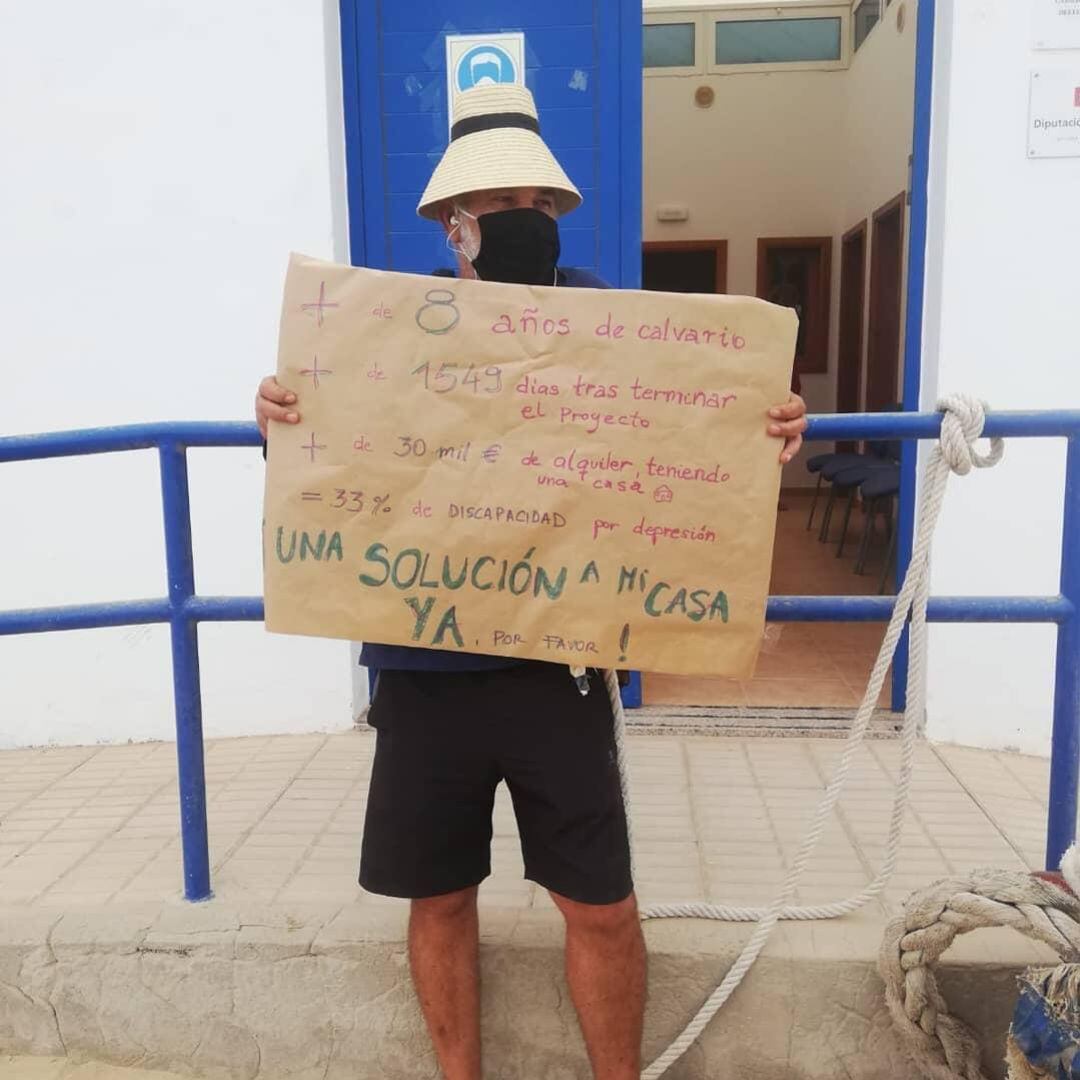 + de 8 años de calvario
+ de 1549 días tras terminar
el Proyecto
+ de 30 mil € de alquiler, teniendo
una casa
= 33% de DISCAPACIDAD por depresión
UNA SOLUCIÓN A MI CASA
YA, POR FAVOR !
Diputació